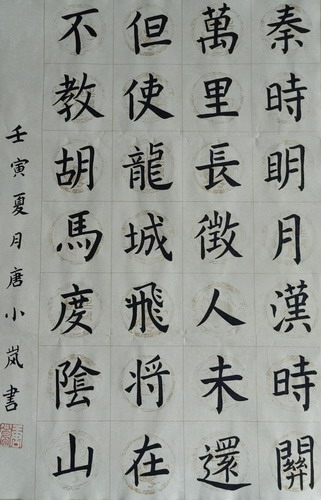 秦時明月漢時關
萬里長徵人未還
但使龍城飛将在
不教胡馬度陰山
壬寅夏月唐小嵐書